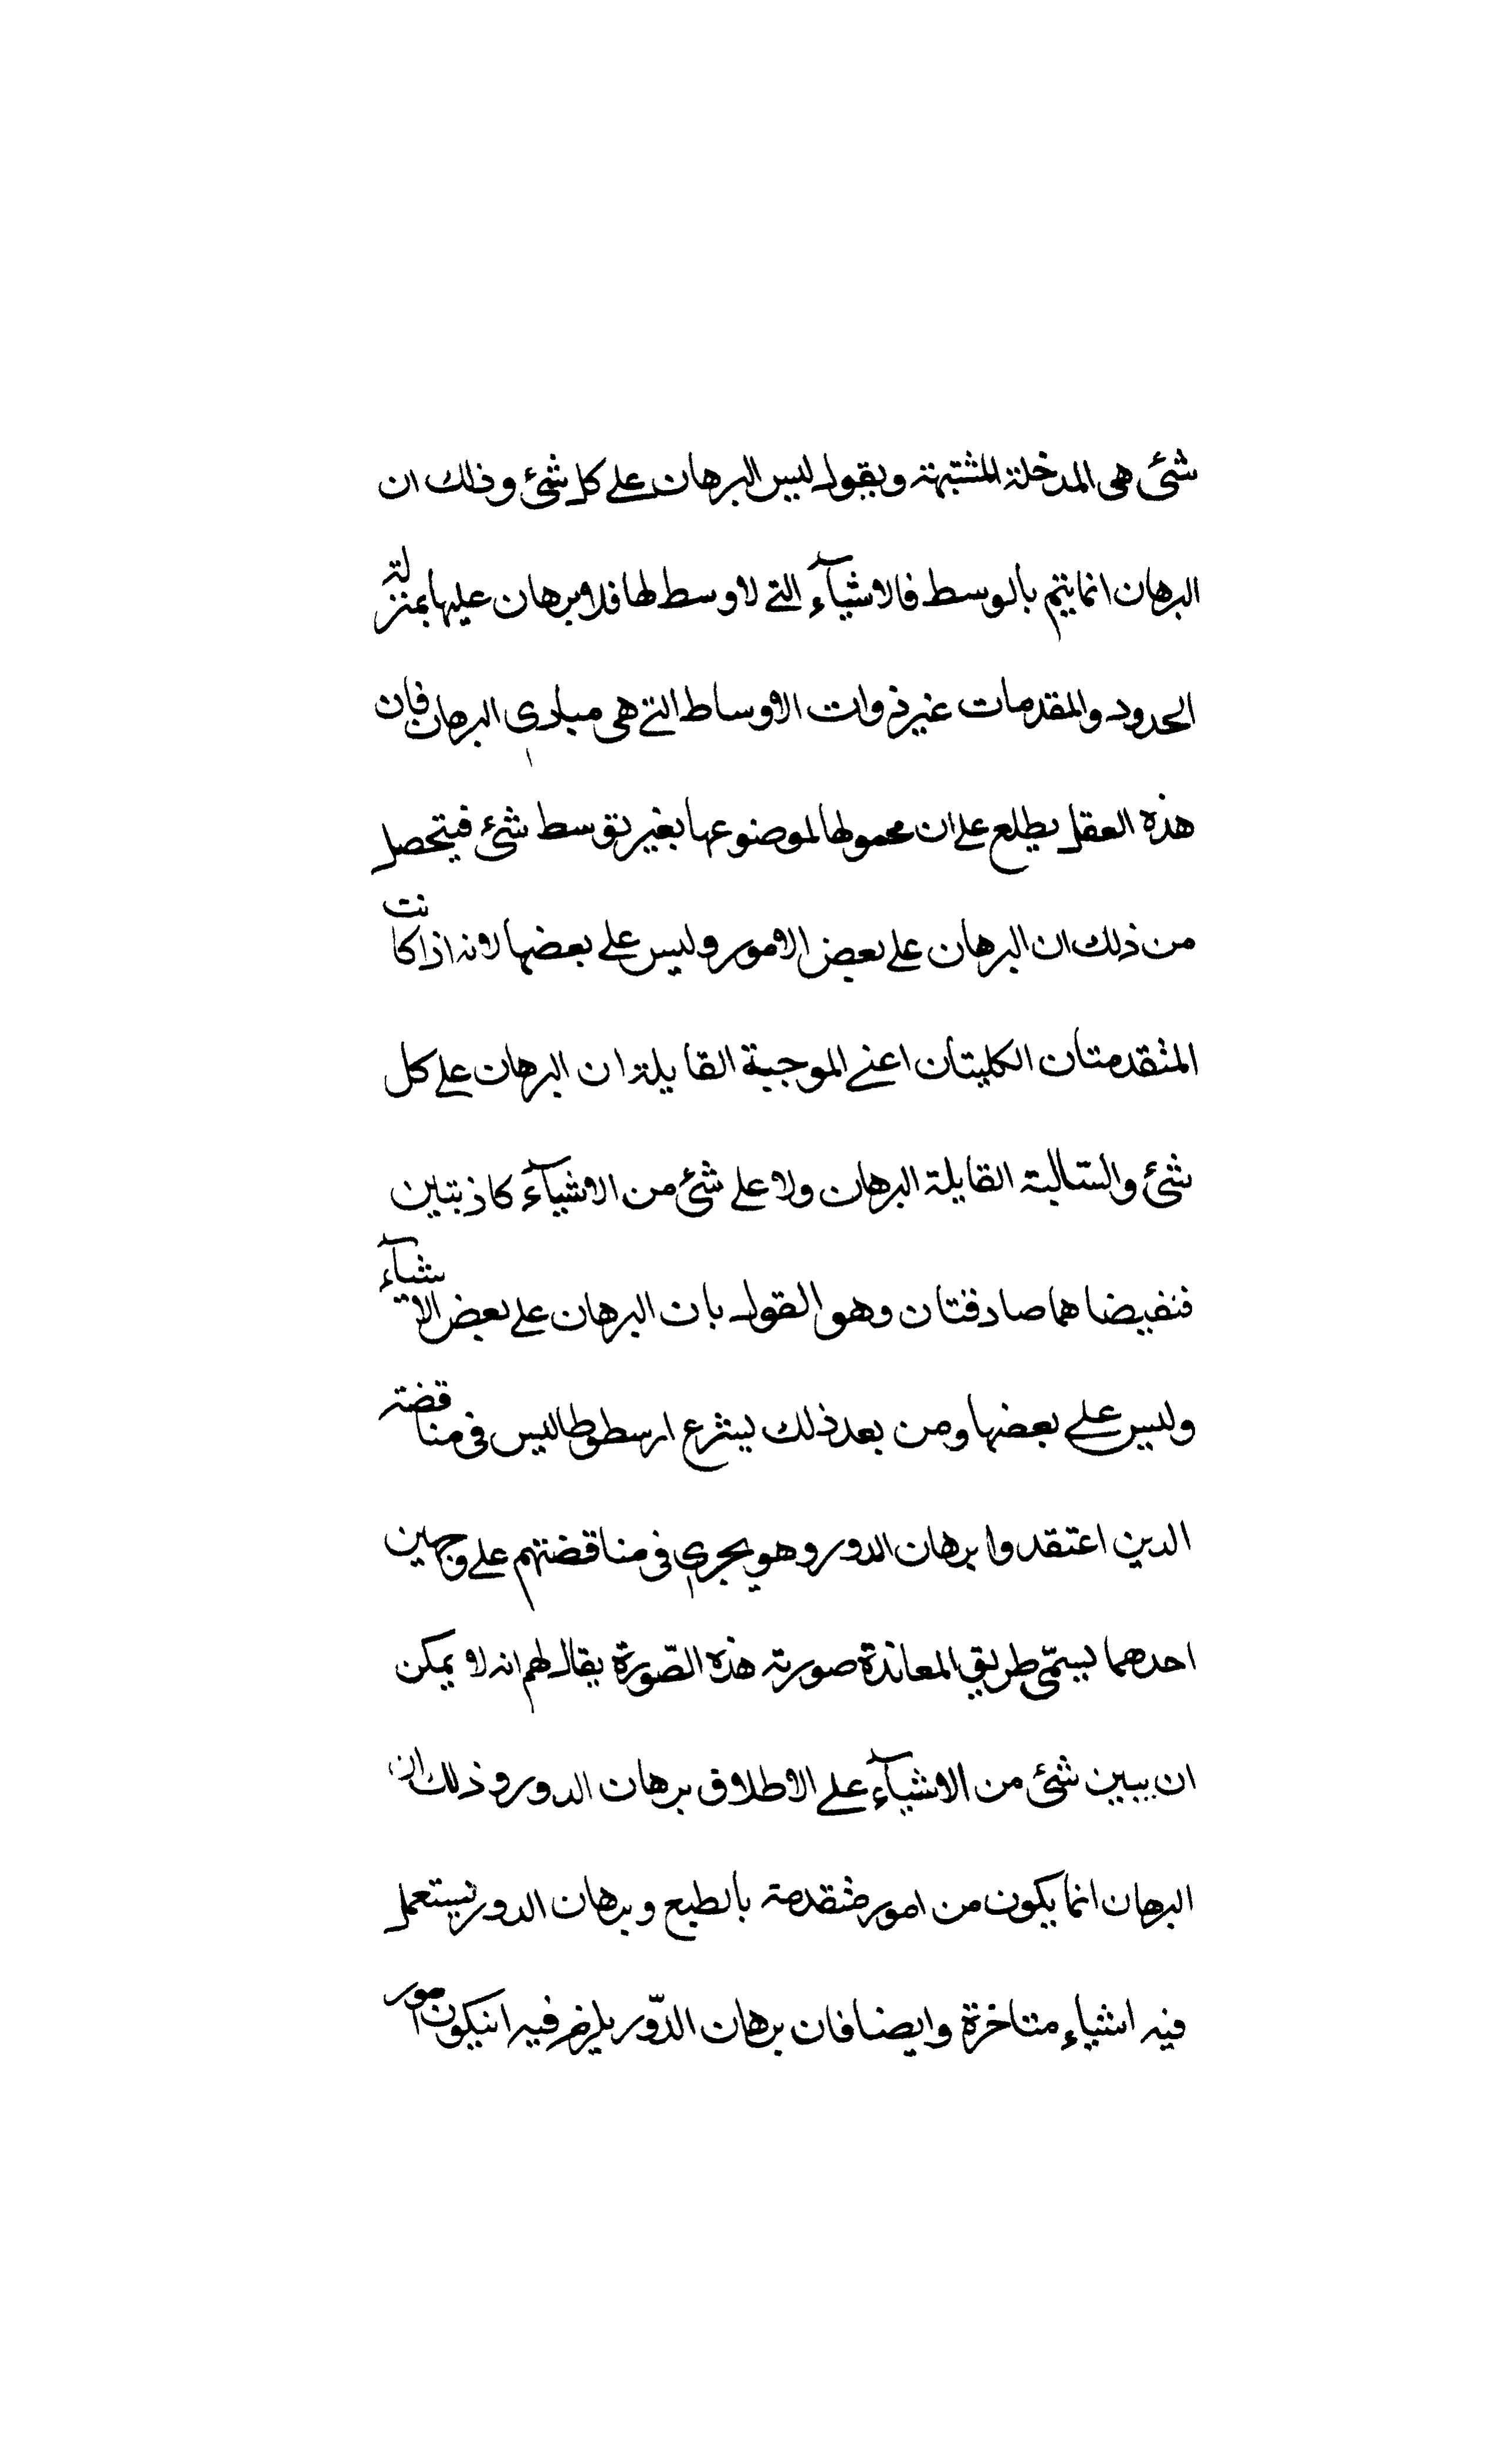 شئ هى المدخلة المشتبهة ويقول ليس البرهان على كل شئ وذلك ان
البرهان انما يتم بالوسط فالاشيآء التى لا وسط لها فلا برهان عليها بمنزلة
الحدود والمقدمات غير ذوات الاوساط التى هى مبادى البرهان فان
هذه العقل يطلع على ان محمولها لموضوعها بغير توسط شئ فيتحصل
من ذلك ان البرهان على بعض الامور وليس على بعضها لانه اذا كانت
المتقدمتان الكليتان اعنى الموجبة القايلة ان البرهان على كل
شئ والسّالبة القايلة البرهان ولا على شئ من الاشيآء كاذبتين
فنقيضا هما صادقتان وهو القول بان البرهان على بعض الاشيآء
وليس على بعضها ومن بعد ذلك يشرع ارسطوطاليس فى مناقضة
الدين اعتقدوا برهان الدور وهو يجرى فى مناقضتهم على وجهين
احدهما يسمّى طريق المعاندة صورته هذه الصّورة يقال لهم انه لا يمكن
ان يبين شئ من الاشيآء على الاطلاق برهان الدور وذلك ان
البرهان انما يكون من امور متقدمة بالطبع وبرهان الدور نستعمل
فيه اشياء متاخرة وايضا فان برهان الدّور يلزم فيه انيكون امور